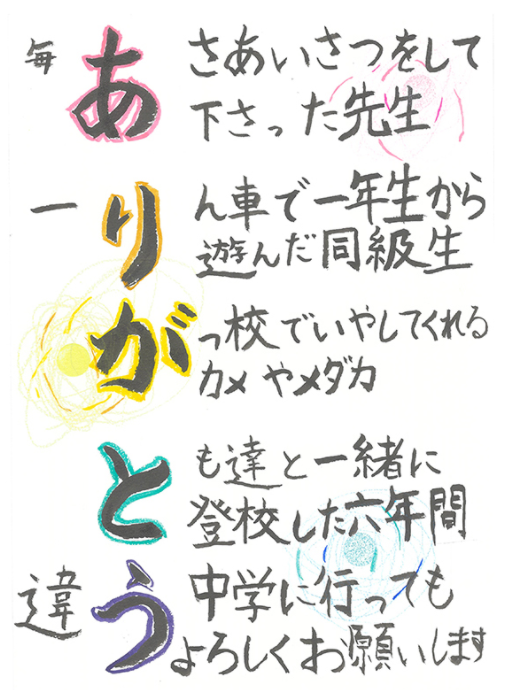 毎あさあいさつをして
下さった先生
一りん車で一年生から
遊んだ同級生
がっ校でいやしてくれる
カメやメダカ
とも達と一緒に
登校した六年間
違う中学に行っても
よろしくお願いします